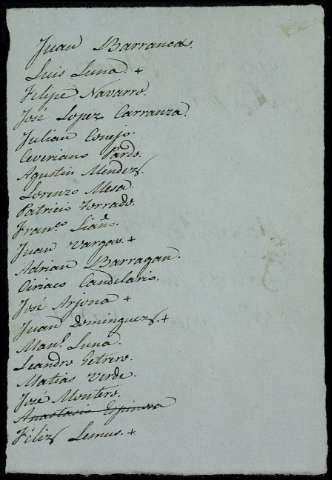 Juan Barranca.
Luis Luna. +
Felipe Navarro.
José Lopez Carranza.
Julian Conejo.
Ceveriano Pardo.
Agustin Mendez.
Lorenzo Mesa.
Patricio Torrado.
Franco.
Juan Vargas. +
Adrian Barragan.
Ciriaco Candelario.
José Arjona +
Juan Dominguez. +
Manl. Luna.
Leandro Petrero.
Matias Verde.
José Montero.
Anastacio Espinosa
Féliz Lemus. +